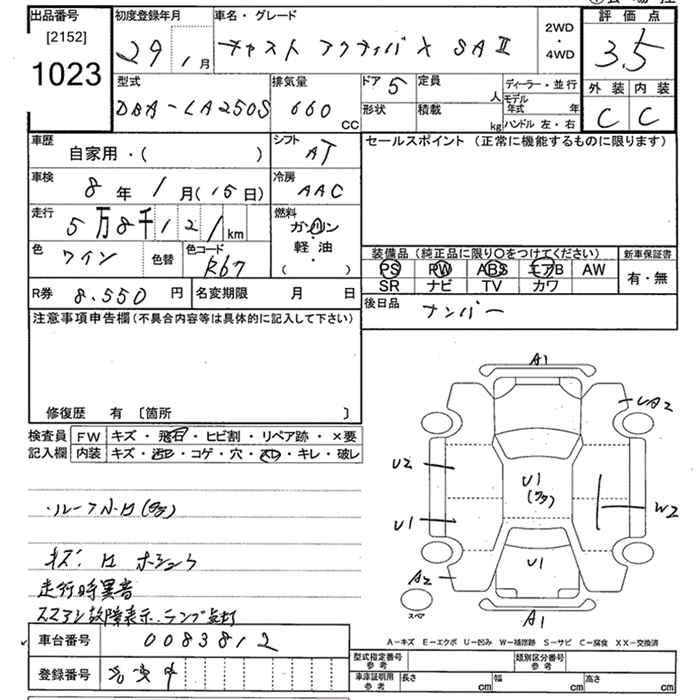 出品番号 初度登録年月 車名・グレード 2WD・4WD 評価点
[2152] 29年1月 キャスト アクティバX SAⅡ 3.5
1023
型式 排気量 ドア 5 定員 人 ディーラー・並行 外装 内装
DBA-LA250S 660 CC 形状 積載 kg モデル年式 年 C C
ハンドル 左・右
車歴 シフト セールスポイント (正常に機能するものに限ります)
自家用・( ) AT
車検 8年1月(15日) 冷房 AAC
走行 5万8千121km 燃料 ガソリン
軽油
( )
色 ワイン 色替 色コード R67
装備品 (純正品に限り〇をつけてください) 新車保証書
PS PW ABS エアB AW 有・無
SR ナビ TV カワ
R券 8.550円 名変期限 月 日 後日品 ナンバー
注意事項申告欄 (不具合内容等は具体的に記入して下さい)
修復歴 有 〔箇所 〕
検査員 FW キズ・飛石・ヒビ割・リペア跡・×要
記入欄 内装 キズ・・コゲ・穴・・キレ・破レ
A1
UA2
U2
U1
W2
U1
U1
A2
A1
スペア
キズ、
走行時異音
故障表示、ランプ点灯
A-キズ E-エクボ U-凹み W-補修跡 S-サビ C-腐食 XX-交換済
車台番号 0083812
登録番号
型式指定番号 参考 類別区分番号 参考
車庫証明用 参考 長さ cm 幅 cm 高さ cm